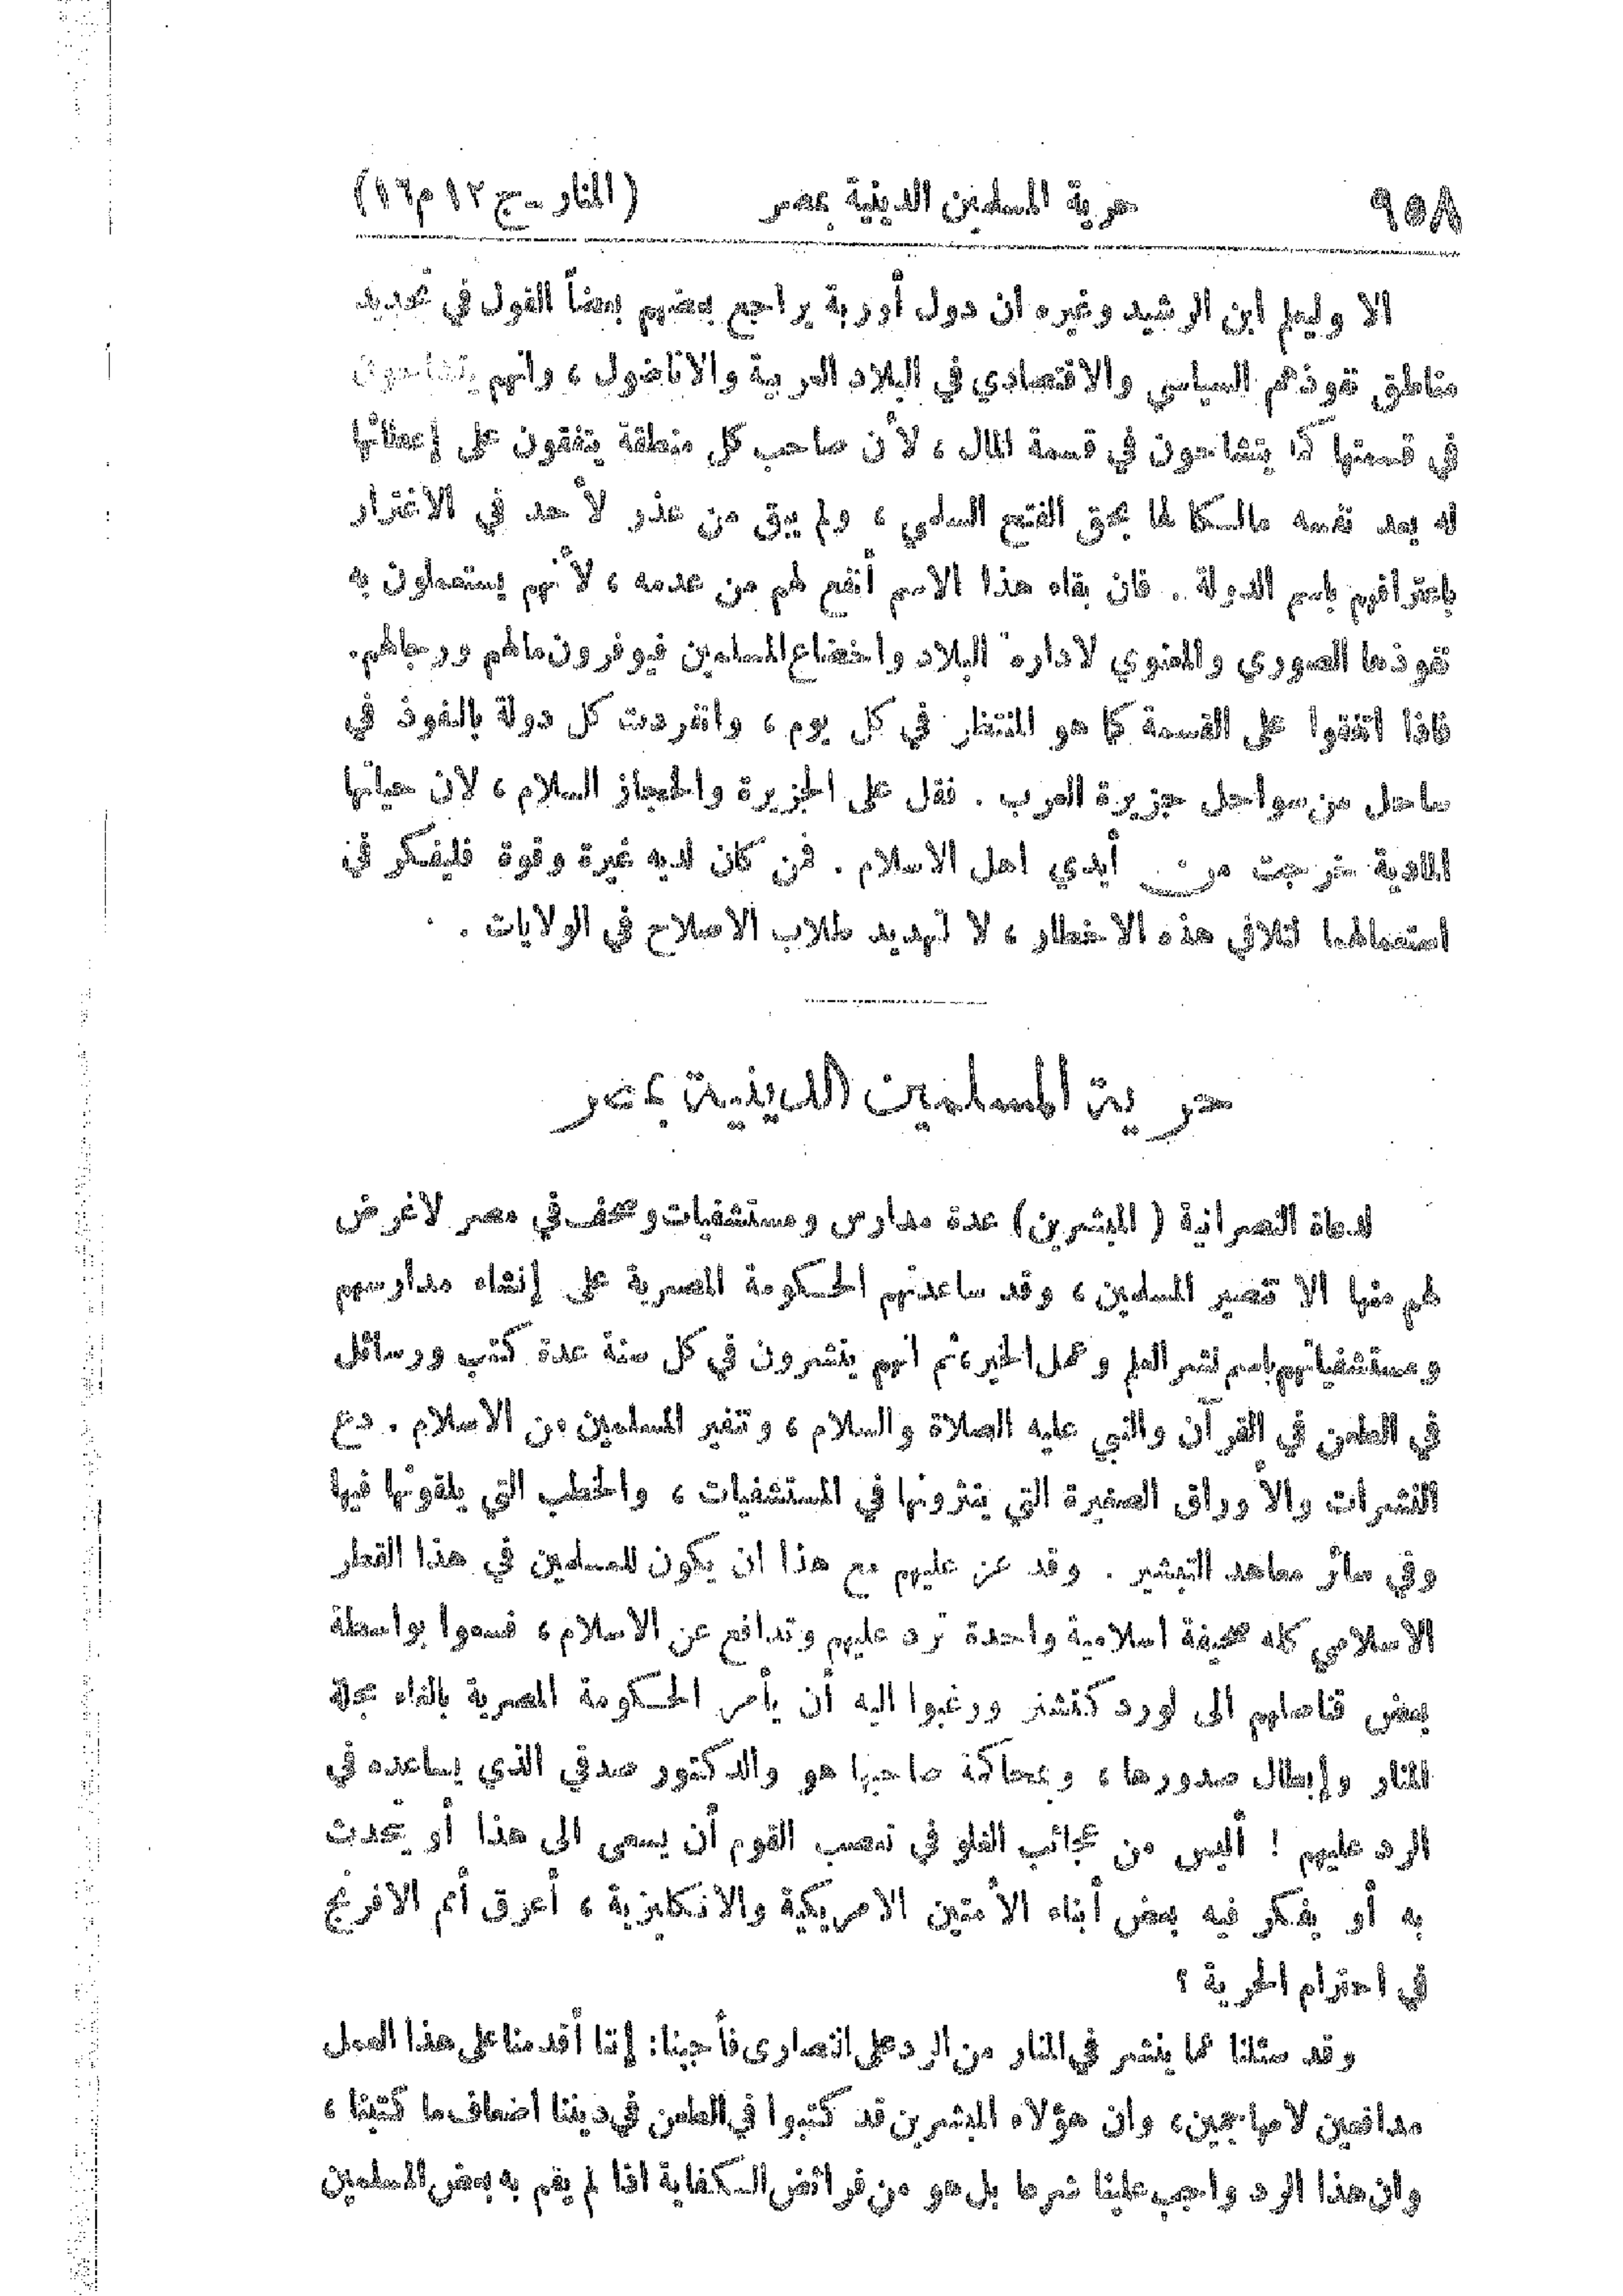 ٩٥٨ حرية المسلمين الدينية بمصر (المنار ـ ج ١٢ م ١٦)
الا وليعلم ابن الرشيد وغيره ان دول أوربة يراجع بعضهم بعضاً القول في تحديد
مناطق نفوذهم السياسي والاقتصادي في البلاد العربية والاناضول ، وانهم يتشاحون
في قسمتها كما يتشاحون في قسمة المال ، لأن صاحب كل منطقة يتفقون على إعطائها
له يعد نفسه مالكا لها بحق الفتح السلمي ، ولم يبق من عذر لأحد في الاغترار
باعترافهم باسم الدولة . فان بقاء هذا الاسم أنفع لهم من عدمه ، لأنهم يستعملون به
نفوذها الصوري والمعنوي لادارة البلاد واخضاع المسلمين فيوفرون مالهم ورجالهم .
فاذا اتفقوا على القسمة كما هو المنتظر في كل يوم ، وانفردت كل دولة بالنفوذ في
ساحل من سواحل جزيرة العرب . فقل على الجزيرة والحجاز السلام ، لان حياتها
المادية خرجت من أيدي اهل الاسلام . فمن كان لديه غيرة وقوة فليفكر في
استعمالهما لتلافي هذه الاخطار ، لا لتهديد طلاب الاصلاح في الولايات .
حرية المسلمين الدينية بمصر
لدعاة النصرانية ( المبشرين ) عدة مدارس ومستشفيات وصحف في مصر لاغرض
لهم منها الا تنصير المسلمين ، وقد ساعدتهم الحكومة المصرية على إنشاء مدارسهم
ومستشفياتهم باسم نشر العلم وعمل الخير ، ثم انهم ينشرون في كل سنة عدة كتب ورسائل
في الطعن في القرآن والنبي عليه الصلاة والسلام ، وتنفير المسلمين من الاسلام . دع
النشرات والأوراق الصغيرة التي ينثرونها في المستشفيات ، والخطب التي يلقونها فيها
وفي سائر معاهد التبشير . وقد عز عليهم مع هذا ان يكون للمسلمين في هذا القطر
الاسلامي كله صحيفة اسلامية واحدة ترد عليهم وتدافع عن الاسلام ، فسعوا بواسطة
بعض قناصلهم الى لورد كتشنر ورغبوا اليه أن يأمر الحكومة المصرية بالغاء مجلة
المنار وإبطال صدورها ، ومحاكمة صاحبها هو والدكتور صدقي الذي يساعده في
الرد عليهم ! أليس من عجائب الغلو في تعصب القوم أن يسعى الى هذا أو يتحدث
به أو يفكر فيه بعض أبناء الأمتين الامريكية والانكليزية ، أعرق أمم الافرنج
في احترام الحرية ؟
وقد سئلنا عما ينشر في المنار من الرد على النصارى فأجبنا : إننا أقدمنا على هذا العمل
مدافعين لا مهاجمين ، وان هؤلاء المبشرين قد كتبوا في الطعن في ديننا اضعاف ما كتبنا ،
وان هذا الرد واجب علينا شرعا بل هو من فرائض الكفاية اذا لم يقم به بعض المسلمين